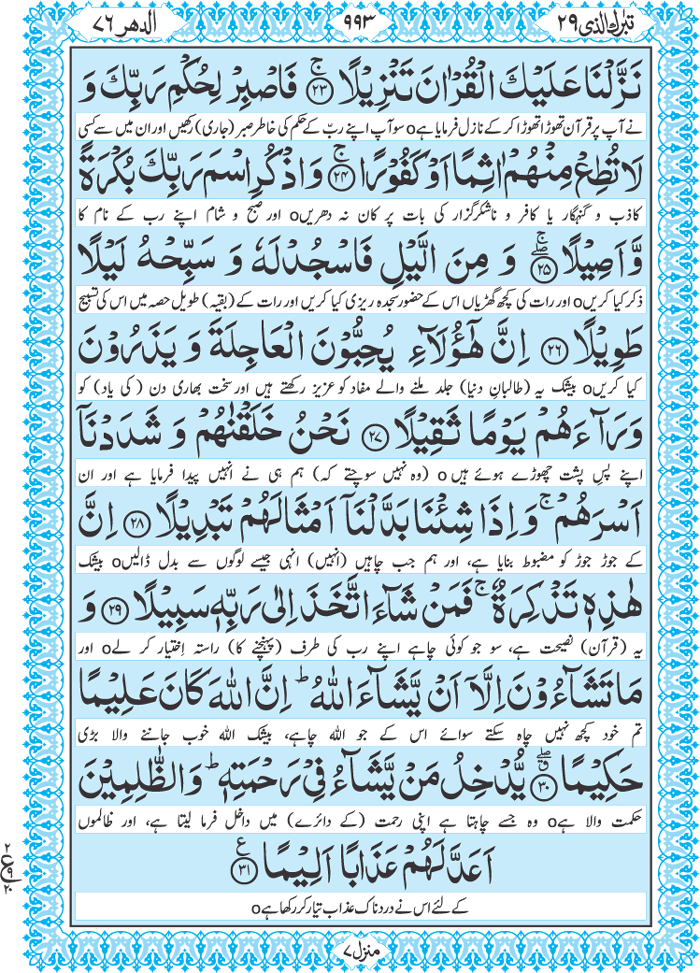 تبٰرك الذی ۲۹ ۹۹۳ الدهر ۷۶
نَزَّلْنَا عَلَیْكَ الْقُرْاٰنَ تَنْزِیْلًا ۚ﴿۲۳﴾ فَاصْبِرْ لِحُكْمِ رَبِّكَ وَ
نے آپ پر قرآن تھوڑا تھوڑا کر کے نازل فرمایا ہےo سو آپ اپنے ربّ کے حکم کی خاطر صبر (جاری) رکھیں اور ان میں سے کسی
لَا تُطِعْ مِنْهُمْ اٰثِمًا اَوْ كَفُوْرًا ۚ﴿۲۴﴾ وَ اذْكُرِ اسْمَ رَبِّكَ بُكْرَةً
کاذب و گنہگار یا کافر و ناشکرگزار کی بات پر کان نہ دھریںo اور صبح و شام اپنے رب کے نام کا
وَّ اَصِیْلًا ۖۚ﴿۲۵﴾ وَ مِنَ الَّیْلِ فَاسْجُدْ لَهٗ وَ سَبِّحْهُ لَیْلًا
ذکر کیا کریںo اور رات کی کچھ گھڑیاں اس کے حضور سجدہ ریزی کیا کریں اور رات کے (بقیہ) طویل حصہ میں اس کی تسبیح
طَوِیْلًا ﴿۲۶﴾ اِنَّ هٰۤؤُلَآءِ یُحِبُّوْنَ الْعَاجِلَةَ وَ یَذَرُوْنَ
کیا کریںo بیشک یہ (طالبانِ دنیا) جلد ملنے والے مفاد کو عزیز رکھتے ہیں اور سخت بھاری دن (کی یاد) کو
وَرَآءَهُمْ یَوْمًا ثَقِیْلًا ﴿۲۷﴾ نَحْنُ خَلَقْنٰهُمْ وَ شَدَدْنَاۤ
اپنے پسِ پشت چھوڑے ہوئے ہیںo (وہ نہیں سوچتے کہ) ہم ہی نے انہیں پیدا فرمایا ہے اور ان
اَسْرَهُمْ ۚ وَ اِذَا شِئْنَا بَدَّلْنَاۤ اَمْثَالَهُمْ تَبْدِیْلًا ﴿۲۸﴾ اِنَّ
کے جوڑ جوڑ کو مضبوط بنایا ہے، اور ہم جب چاہیں (انہیں) انہی جیسے لوگوں سے بدل ڈالیںo بیشک
هٰذِهٖ تَذْكِرَةٌ ۚ فَمَنْ شَآءَ اتَّخَذَ اِلٰی رَبِّهٖ سَبِیْلًا ﴿۲۹﴾ وَ
یہ (قرآن) نصیحت ہے، سو جو کوئی چاہے اپنے رب کی طرف (پہنچنے کا) راستہ اِختیار کر لےo اور
مَا تَشَآءُوْنَ اِلَّاۤ اَنْ یَّشَآءَ اللّٰهُ ؕ اِنَّ اللّٰهَ كَانَ عَلِیْمًا
تم خود کچھ نہیں چاہ سکتے سوائے اس کے جو اللہ چاہے، بیشک اللہ خوب جاننے والا بڑی
حَكِیْمًا ۖۗ﴿۳۰﴾ یُّدْخِلُ مَنْ یَّشَآءُ فِیْ رَحْمَتِهٖ ؕ وَ الظّٰلِمِیْنَ
حکمت والا ہےo وہ جسے چاہتا ہے اپنی رحمت (کے دائرے) میں داخل فرما لیتا ہے، اور ظالموں
اَعَدَّ لَهُمْ عَذَابًا اَلِیْمًا ﴿۳۱﴾ ع
کے لئے اس نے دردناک عذاب تیار کر رکھا ہےo
۲ ع ۹ ۲۰
منزل ۷